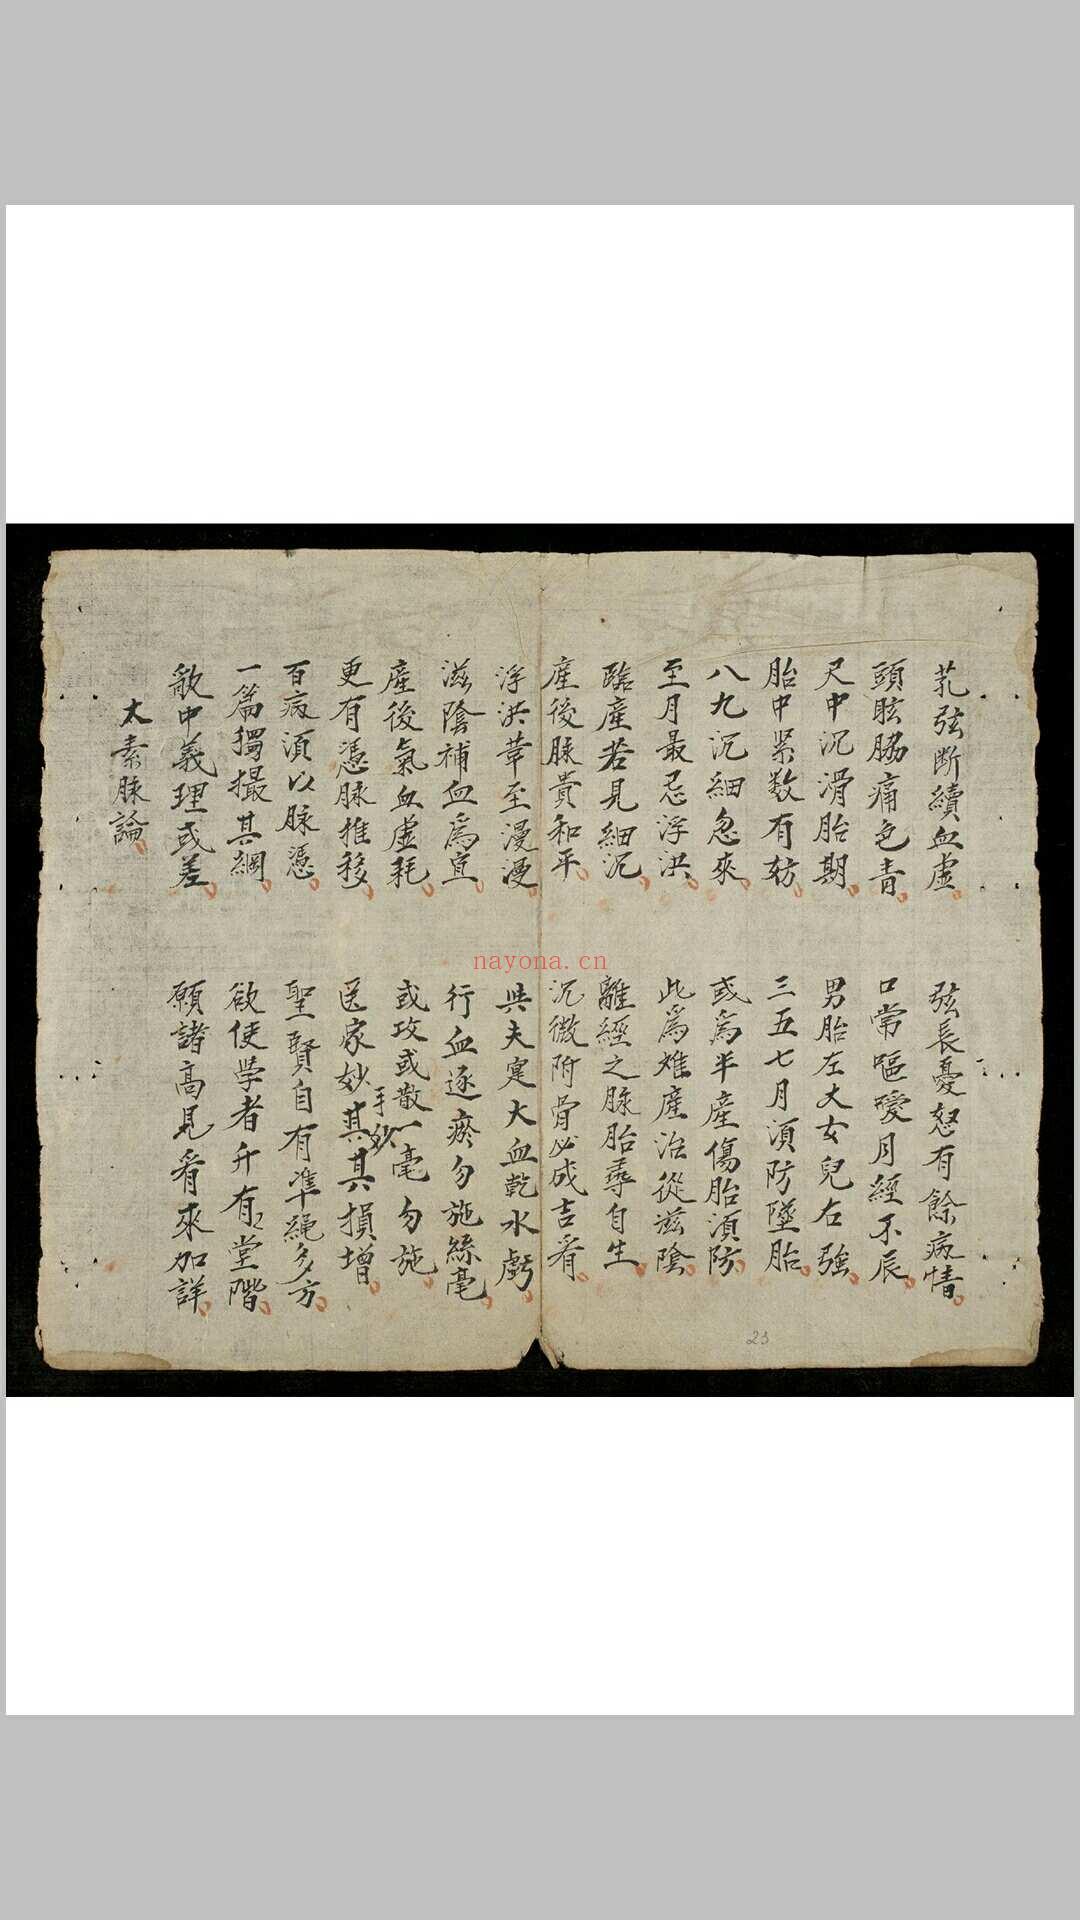 芤弦断續血虛 弦長憂怒有餘病情
頭眩胁痛色青 口常嘔噯月經不辰
尺中沉滑胎期 男胎左大女兒右強
胎中紧数有妨 三五七月須防墜胎
八九沉細忽來 或爲半產傷胎須防
至月最忌浮洪 此爲难產治從滋陰
臨產若見細沉 離經之脉胎尋自生
產後脉貴和平 沉微附骨必成吉看
浮洪革至漫漫 與夫寔大血乾水虧
滋陰補血爲宜 行血逐瘀勿施絲毫
產後氣血虛耗 或攻或散一毫勿施
更有憑脉推移 医家妙其其損增
手妙
百病須以脉憑 聖賢自有準繩多方
一篇獨撮其綱 欲使学者升有堂階
歌中義理或差 願諸高見看來加詳
太素脉論
nayona.cn
23